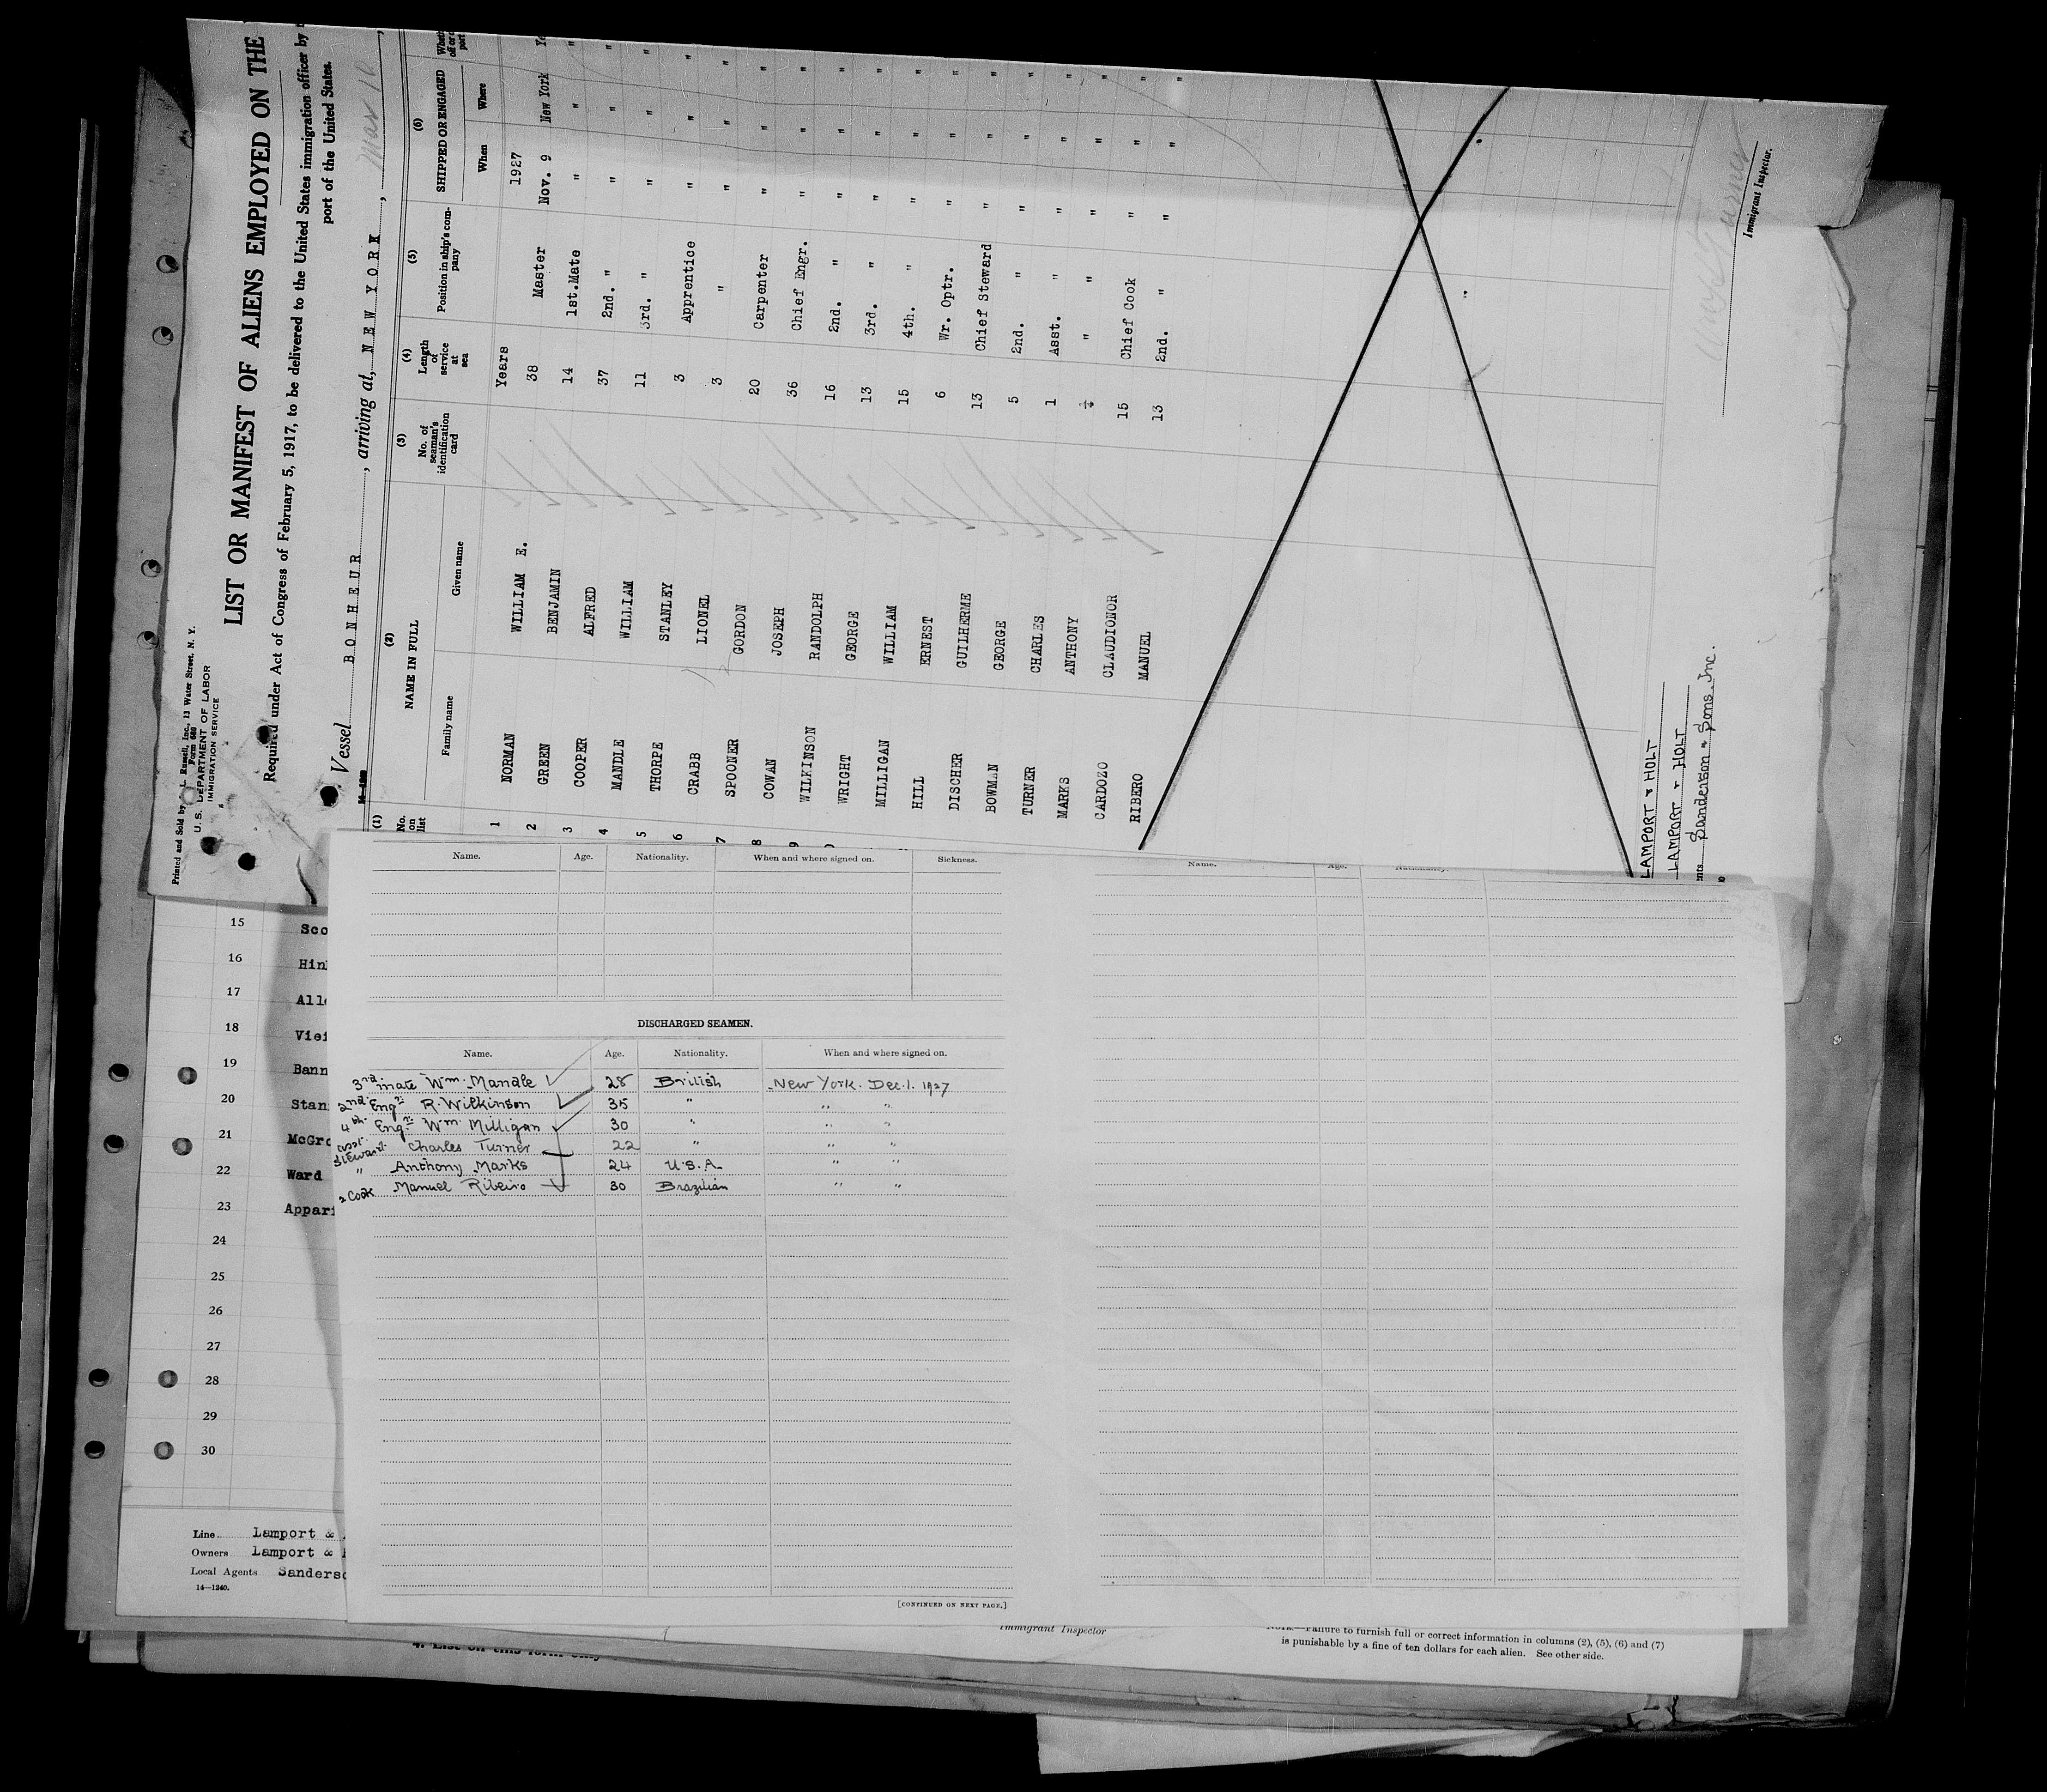 Printed and Sold by L. Russell, Inc., 13 Water Street, N. Y.
Form 680
U. S. DEPARTMENT OF LABOR
IMMIGRATION SERVICE
LIST OR MANIFEST OF ALIENS EMPLOYED ON THE
Required under Act of Congress of February 5, 1917, to be delivered to the United States immigration officer by
port of the United States.
Vessel BONHEUR, arriving at, NEW YORK, Mar 10,
(1) (2) (3) (4) (5) (6)
No. on list NAME IN FULL No. of seaman's identification card Length of service at sea Position in ship's company SHIPPED OR ENGAGED
Family name Given name When Where
Years 1927
1 NORMAN WILLIAM E. 38 Master Nov. 9 New York
2 GREEN BENJAMIN 14 1st.Mate " " "
3 COOPER ALFRED 37 2nd. " " " "
4 MANDLE WILLIAM 11 3rd. " " " "
5 THORPE STANLEY 3 Apprentice " " "
6 CRABB LIONEL 3 " " " "
7 SPOONER GORDON 20 Carpenter " " "
8 COWAN JOSEPH 36 Chief Engr. " " "
9 WILKINSON RANDOLPH 16 2nd. " " " "
WRIGHT GEORGE 13 3rd. " " " "
MILLIGAN WILLIAM 15 4th. " " " "
HILL ERNEST 6 Wr. Optr. " " "
DISCHER GUILHERME 13 Chief Steward " " "
BOWMAN GEORGE 5 2nd. " " " "
TURNER CHARLES 1 Asst. " " " "
MARKS ANTHONY " " " "
CARDOZO CLAUDIONOR 15 Chief Cook " " "
RIBERO MANUEL 13 2nd. " " " "
LAMPORT & HOLT
LAMPORT & HOLT
Sanderson & Sons. Inc.
Immigrant Inspector.
Name. Age. Nationality. When and where signed on. Sickness.
DISCHARGED SEAMEN.
Name. Age. Nationality. When and where signed on.
3rd mate Wm. Mandle 28 British New York. Dec. 1. 1927
2nd Engr. R. Wilkinson 35 " " "
4th. Engr. Wm. Milligan 30 " " "
Asst. Steward. Charles Turner 22 " " "
" Anthony Marks 24 U.S.A. " "
2 Cook Manuel Ribeiro 30 Brazilian " "
[CONTINUED ON NEXT PAGE.]
Name. Age. Nationality.
15 Sco
16 Hin
17 All
18 Vie
19 Bann
20 Stan
21 McGr
22 Ward
23 Appar
24
25
26
27
28
29
30
Line Lamport &
Owners Lamport &
Local Agents Sanders
14—1240.
4. List on this form only
Immigrant Inspector
NOTE.—Failure to furnish full or correct information in columns (2), (5), (6) and (7)
is punishable by a fine of ten dollars for each alien. See other side.